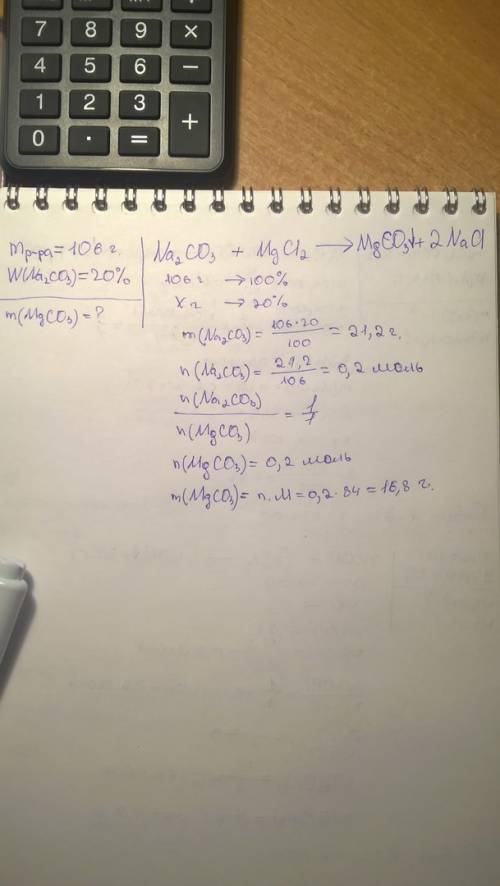 7 8 9 ×
4 5 6 −
1 2 3 +
0 · =
mр-ра = 106 г.
W(Na₂CO₃) = 20%
m(MgCO₃) = ?
Na₂CO₃ + MgCl₂ → MgCO₃↓ + 2NaCl
106 г → 100%
x г → 20%
m(Na₂CO₃) = 106·20/100 = 21,2 г.
n(Na₂CO₃) = 21,2/106 = 0,2 моль
n(Na₂CO₃)/n(MgCO₃) = 1/1
n(MgCO₃) = 0,2 моль
m(MgCO₃) = n·M = 0,2·84 = 16,8 г.